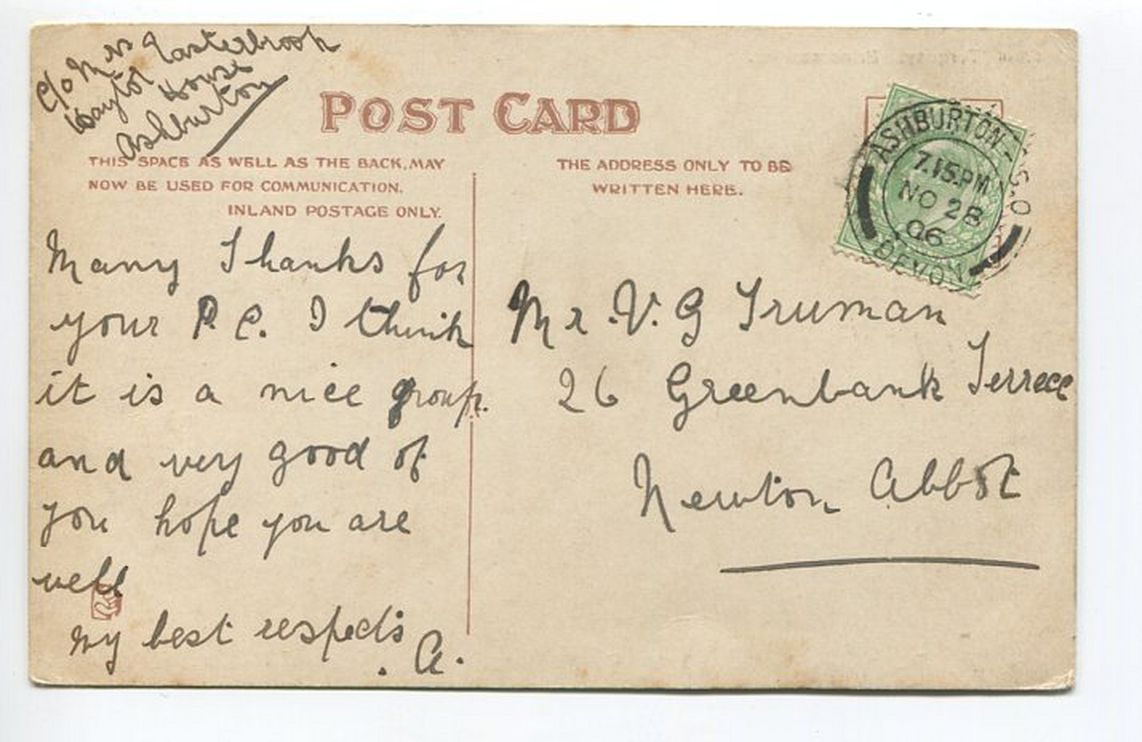 c/o Mrs Easterbrook
Haytor House
Ashburton
POST CARD
THIS SPACE AS WELL AS THE BACK, MAY
NOW BE USED FOR COMMUNICATION.
INLAND POSTAGE ONLY.
THE ADDRESS ONLY TO BE
WRITTEN HERE.
ASHBURTON S.O
7.15.PM
NO 28
06
DEVON
Many Thanks for
your P.C. I think
it is a nice group.
and very good of
you hope you are
well
my best respects
. A.
Mr. V. G Truman
26 Greenbank Terrace
Newton Abbot